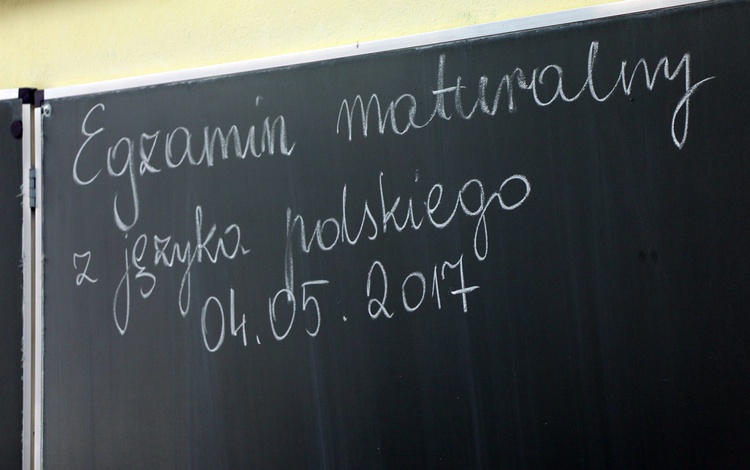 Egzamin maturalny
z języka polskiego
04.05.2017